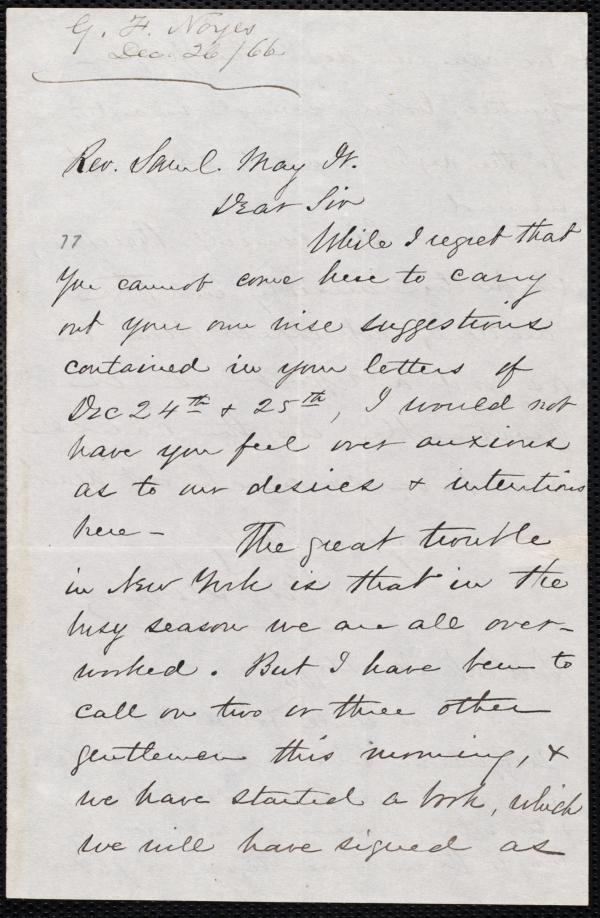 G. F. Noyes
Dec. 26/66
Rev. Saml. May Jr.
Dear Sir
77
While I regret that
you cannot come here to carry
out your own wise suggestions
contained in your letters of
Dec 24th & 25th, I would not
have you feel over anxious
as to our desires & intentions
here - The great trouble
in New York is that in the
busy season we are all over-
worked. But I have been to
call on two or three other
gentlemen this morning, &
we have started a book, which
we will have signed as